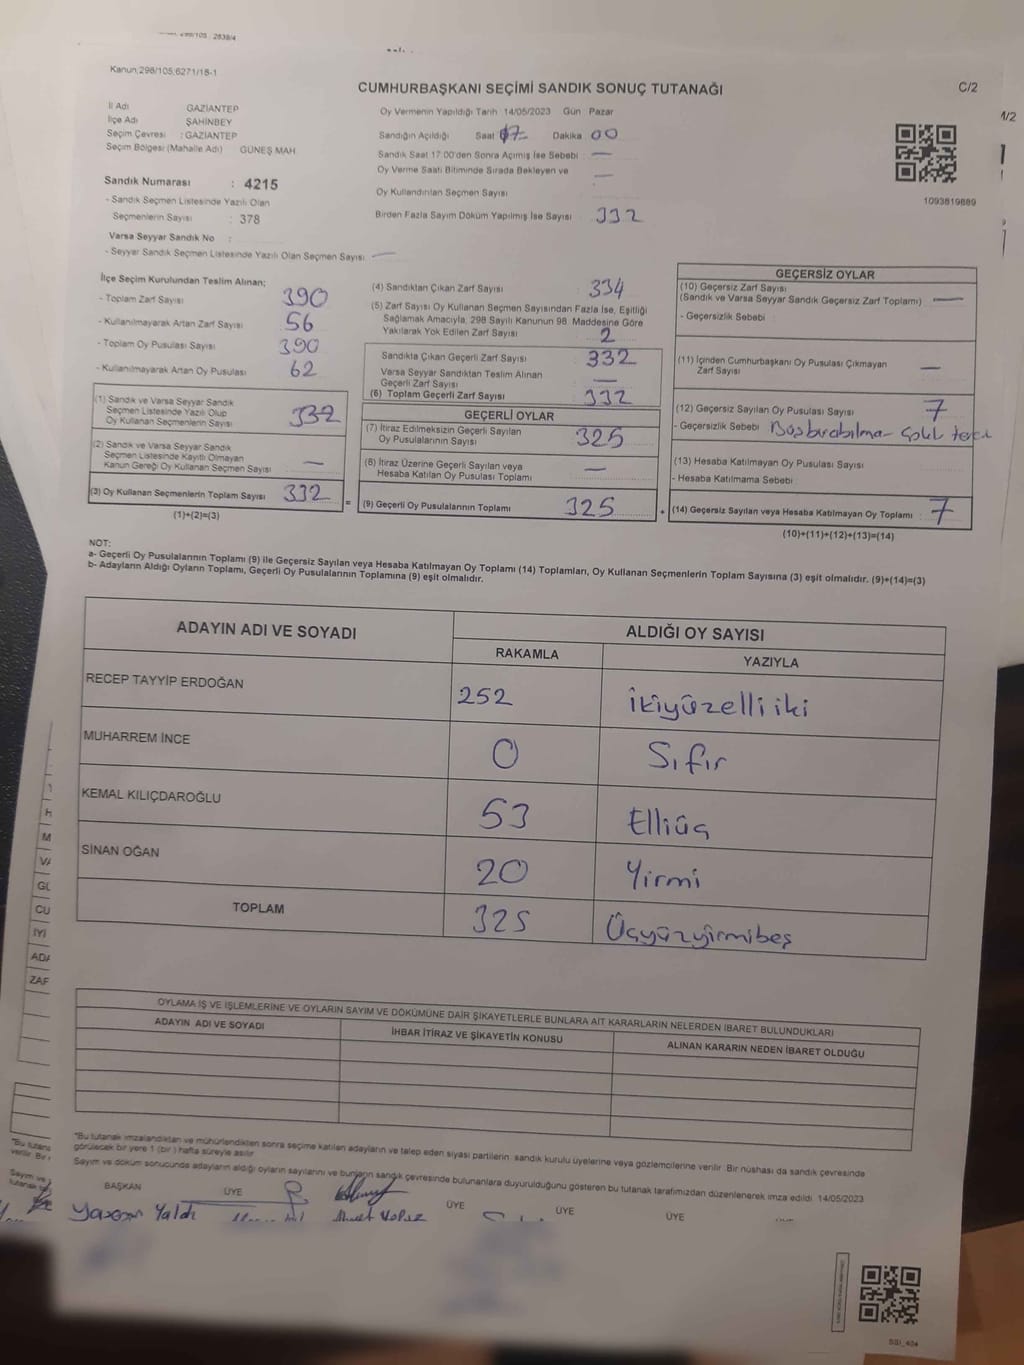 Kanun;298/105;6271/18-1
CUMHURBAŞKANI SEÇİMİ SANDIK SONUÇ TUTANAĞI
C/2
İl Adı GAZİANTEP
İlçe Adı ŞAHİNBEY
Seçim Çevresi : GAZİANTEP
Seçim Bölgesi (Mahalle Adı) GÜNEŞ MAH.
Sandık Numarası : 4215
- Sandık Seçmen Listesinde Yazılı Olan
Seçmenlerin Sayısı : 378
Varsa Seyyar Sandık No :
- Seyyar Sandık Seçmen Listesinde Yazılı Olan Seçmen Sayısı —
Oy Vermenin Yapıldığı Tarih 14/05/2023 Gün Pazar
Sandığın Açıldığı Saat 17 Dakika 00
Sandık Saat 17:00'den Sonra Açımış İse Sebebi : —
Oy Verme Saati Bitiminde Sırada Bekleyen ve —
Oy Kullandırılan Seçmen Sayısı
Birden Fazla Sayım Döküm Yapılmış İse Sayısı 332
1093819889
1/2
İlçe Seçim Kurulundan Teslim Alınan;
- Toplam Zarf Sayısı 390
- Kullanılmayarak Artan Zarf Sayısı 56
- Toplam Oy Pusulası Sayısı 390
- Kullanılmayarak Artan Oy Pusulası 62
(1) Sandık ve Varsa Seyyar Sandık
Seçmen Listesinde Yazılı Olup
Oy Kullanan Seçmenlerin Sayısı 332
(2) Sandık ve Varsa Seyyar Sandık
Seçmen Listesinde Kayıtlı Olmayan
Kanun Gereği Oy Kullanan Seçmen Sayısı —
(3) Oy Kullanan Seçmenlerin Toplam Sayısı 332
(1)+(2)=(3)
(4) Sandıktan Çıkan Zarf Sayısı : 334
(5) Zarf Sayısı Oy Kullanan Seçmen Sayısından Fazla İse, Eşitliği
Sağlamak Amacıyla, 298 Sayılı Kanunun 98. Maddesine Göre
Yakılarak Yok Edilen Zarf Sayısı 2
Sandıkta Çıkan Geçerli Zarf Sayısı 332
Varsa Seyyar Sandıktan Teslim Alınan
Geçerli Zarf Sayısı —
(6) Toplam Geçerli Zarf Sayısı 332
GEÇERLİ OYLAR
(7) İtiraz Edilmeksizin Geçerli Sayılan
Oy Pusulalarının Sayısı 325
(8) İtiraz Üzerine Geçerli Sayılan veya
Hesaba Katılan Oy Pusulası Toplamı —
= (9) Geçerli Oy Pusulalarının Toplamı 325
GEÇERSİZ OYLAR
(10) Geçersiz Zarf Sayısı
(Sandık ve Varsa Seyyar Sandık Geçersiz Zarf Toplamı) —
- Geçersizlik Sebebi
(11) İçinden Cumhurbaşkanı Oy Pusulası Çıkmayan
Zarf Sayısı —
(12) Geçersiz Sayılan Oy Pusulası Sayısı 7
- Geçersizlik Sebebi
(13) Hesaba Katılmayan Oy Pusulası Sayısı
- Hesaba Katılmama Sebebi
+ (14) Geçersiz Sayılan veya Hesaba Katılmayan Oy Toplamı : 7
(10)+(11)+(12)+(13)=(14)
NOT:
a- Geçerli Oy Pusulalarının Toplamı (9) ile Geçersiz Sayılan veya Hesaba Katılmayan Oy Toplamı (14) Toplamları, Oy Kullanan Seçmenlerin Toplam Sayısına (3) eşit olmalıdır. (9)+(14)=(3)
b- Adayların Aldığı Oyların Toplamı, Geçerli Oy Pusulalarının Toplamına (9) eşit olmalıdır.
ADAYIN ADI VE SOYADI ALDIĞI OY SAYISI
RAKAMLA YAZIYLA
RECEP TAYYİP ERDOĞAN 252 ikiyüzelliiki
MUHARREM İNCE 0 Sıfır
KEMAL KILIÇDAROĞLU 53 Elliüç
SİNAN OĞAN 20 Yirmi
TOPLAM 325 Üçyüzyirmibeş
OYLAMA İŞ VE İŞLEMLERİNE VE OYLARIN SAYIM VE DÖKÜMÜNE DAİR ŞİKAYETLERLE BUNLARA AİT KARARLARIN NELERDEN İBARET BULUNDUKLARI
ADAYIN ADI VE SOYADI İHBAR İTİRAZ VE ŞİKAYETİN KONUSU ALINAN KARARIN NEDEN İBARET OLDUĞU
*Bu tutanak imzalandıktan ve mühürlendikten sonra seçime katılan adayların ve talep eden siyasi partilerin, sandık kurulu üyelerine veya gözlemcilerine verilir. Bir nüshası da sandık çevresinde
görülecek bir yere 1 (bir) hafta süreyle asılır
Sayım ve döküm sonucunda adayların aldığı oyların sayılarını ve bunların sandık çevresinde bulunanlara duyurulduğunu gösteren bu tutanak tarafımızdan düzenlenerek imza edildi. 14/05/2023
BAŞKAN ÜYE ÜYE ÜYE ÜYE
SSI_404